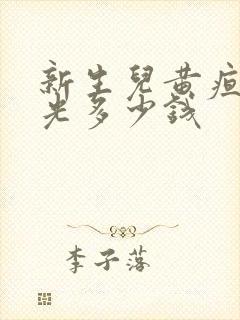 新生兒黄疸
光多少錢
李子落